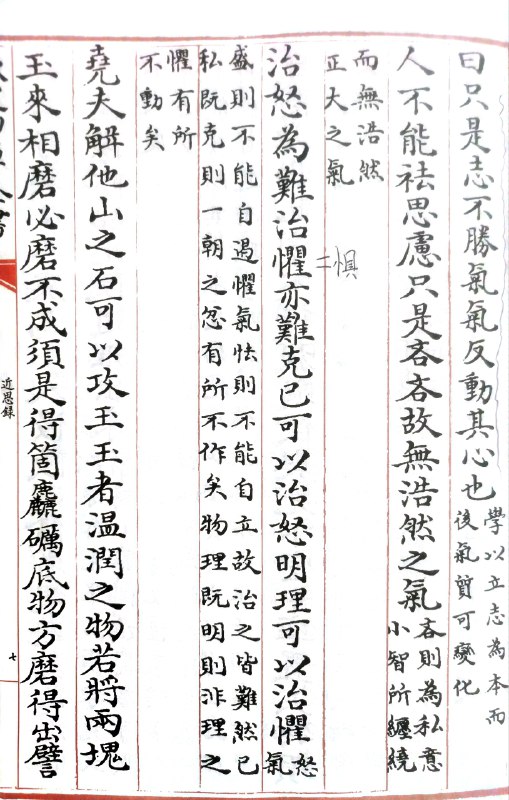 曰只是志不勝氣氣反動其心也學以立志為本而
後氣質可變化
人不能祛思慮只是吝吝故無浩然之氣吝則為私意
小智所纏繞
而無浩然
正大之氣
治怒為難治懼亦難克己可以治怒明理可以治懼怒
氣
盛則不能自遏懼氣怯則不能自立故治之皆難然已
私既克則一朝之忿有所不作矣物理既明則非理之
懼有所
不動矣
堯夫解他山之石可以攻玉玉者溫潤之物若將兩塊
玉來相磨必磨不成須是得箇麤礪底物方磨得出譬
二惧
近思録
七